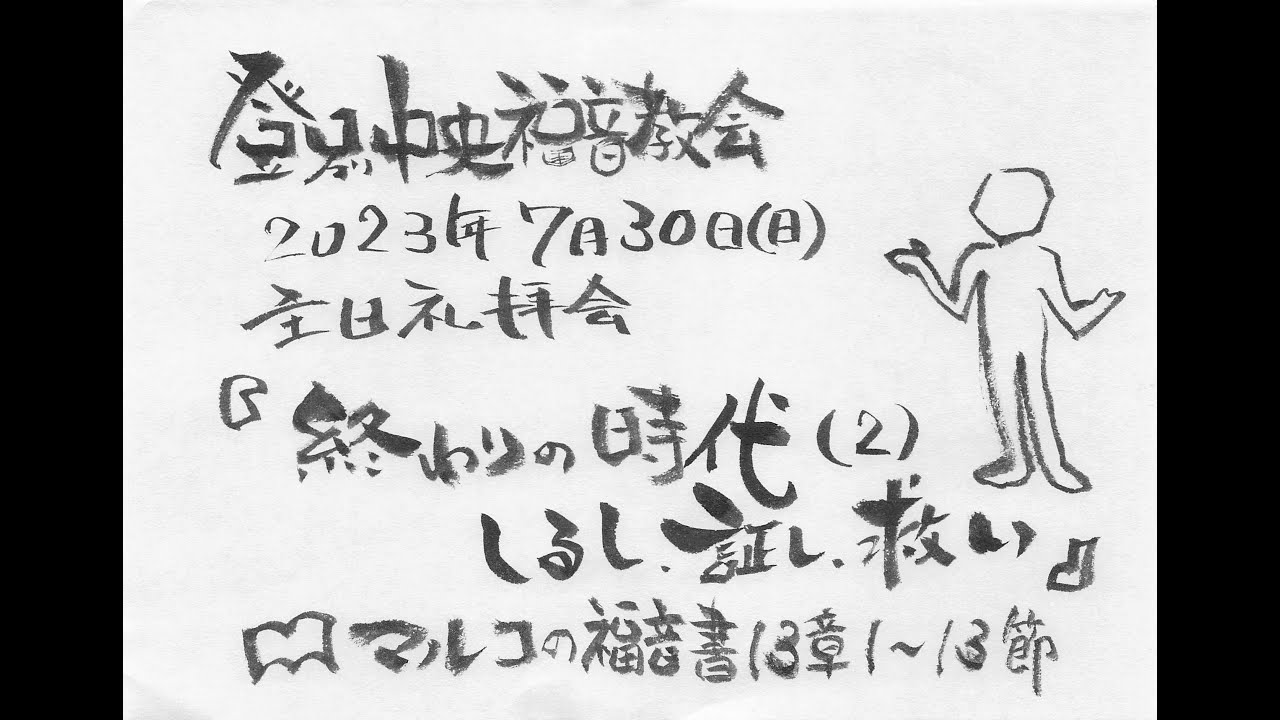 登別中央福音教会
2023年7月30日(日)
主日礼拝会
『終わりの時代(2)
しるし、証し、救い』
マルコの福音書13章1~13節